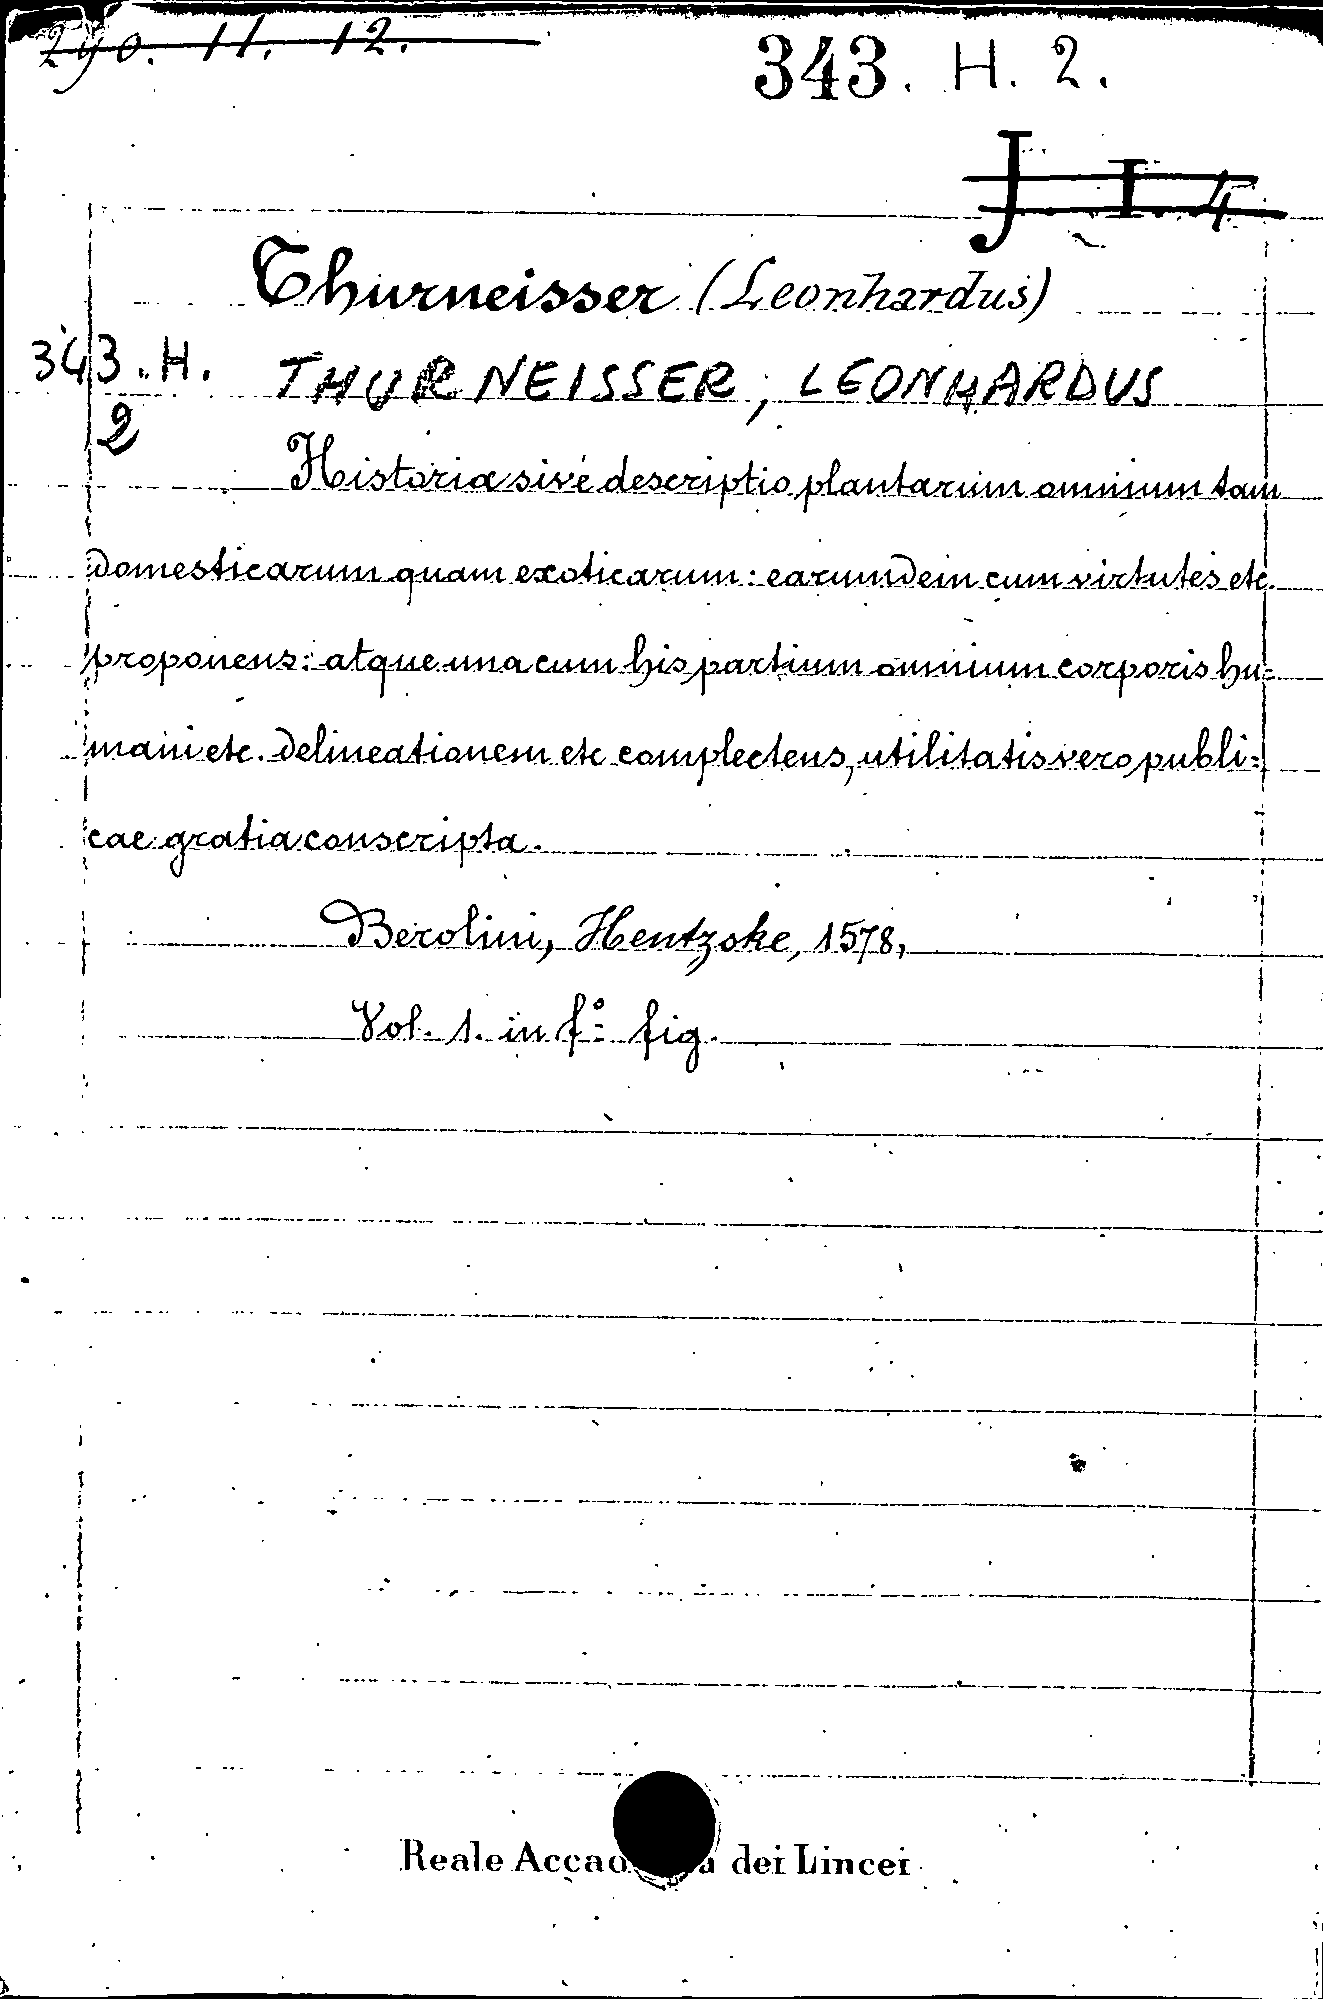 290. 11. 12.
343. H. 2.
J I 4
Thurneisser (Leonhardus)
343. H.
2
THURNEISSER, LEONHARDUS
Historia sive descriptio plantarum omnium tam
domesticarum quam exoticarum: earumdem cum virtutes etc.
proponens: atque una cum his partium omnium corporis hu=
mani etc. delineationem etc complectens, utilitatis vero publi=
cae gratia conscripta.
Berolini, Hentzske, 1578,
Vol. 1. in f.° fig.
Reale dei Lincei